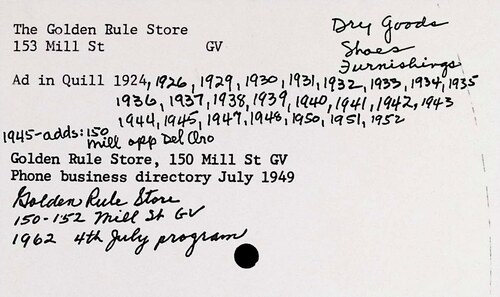 The Golden Rule Store
153 Mill St GV
Dry Goods
Shoes
Furnishings
Ad in Quill 1924, 1926, 1929, 1930, 1931, 1932, 1933, 1934, 1935
1936, 1937, 1938, 1939, 1940, 1941, 1942, 1943
1944, 1945, 1947, 1948, 1950, 1951, 1952
1945-adds: 150
Mill opp Del Oro
Golden Rule Store, 150 Mill St GV
Phone business directory July 1949
Golden Rule Store
150-152 Mill St GV
1962 4th July program